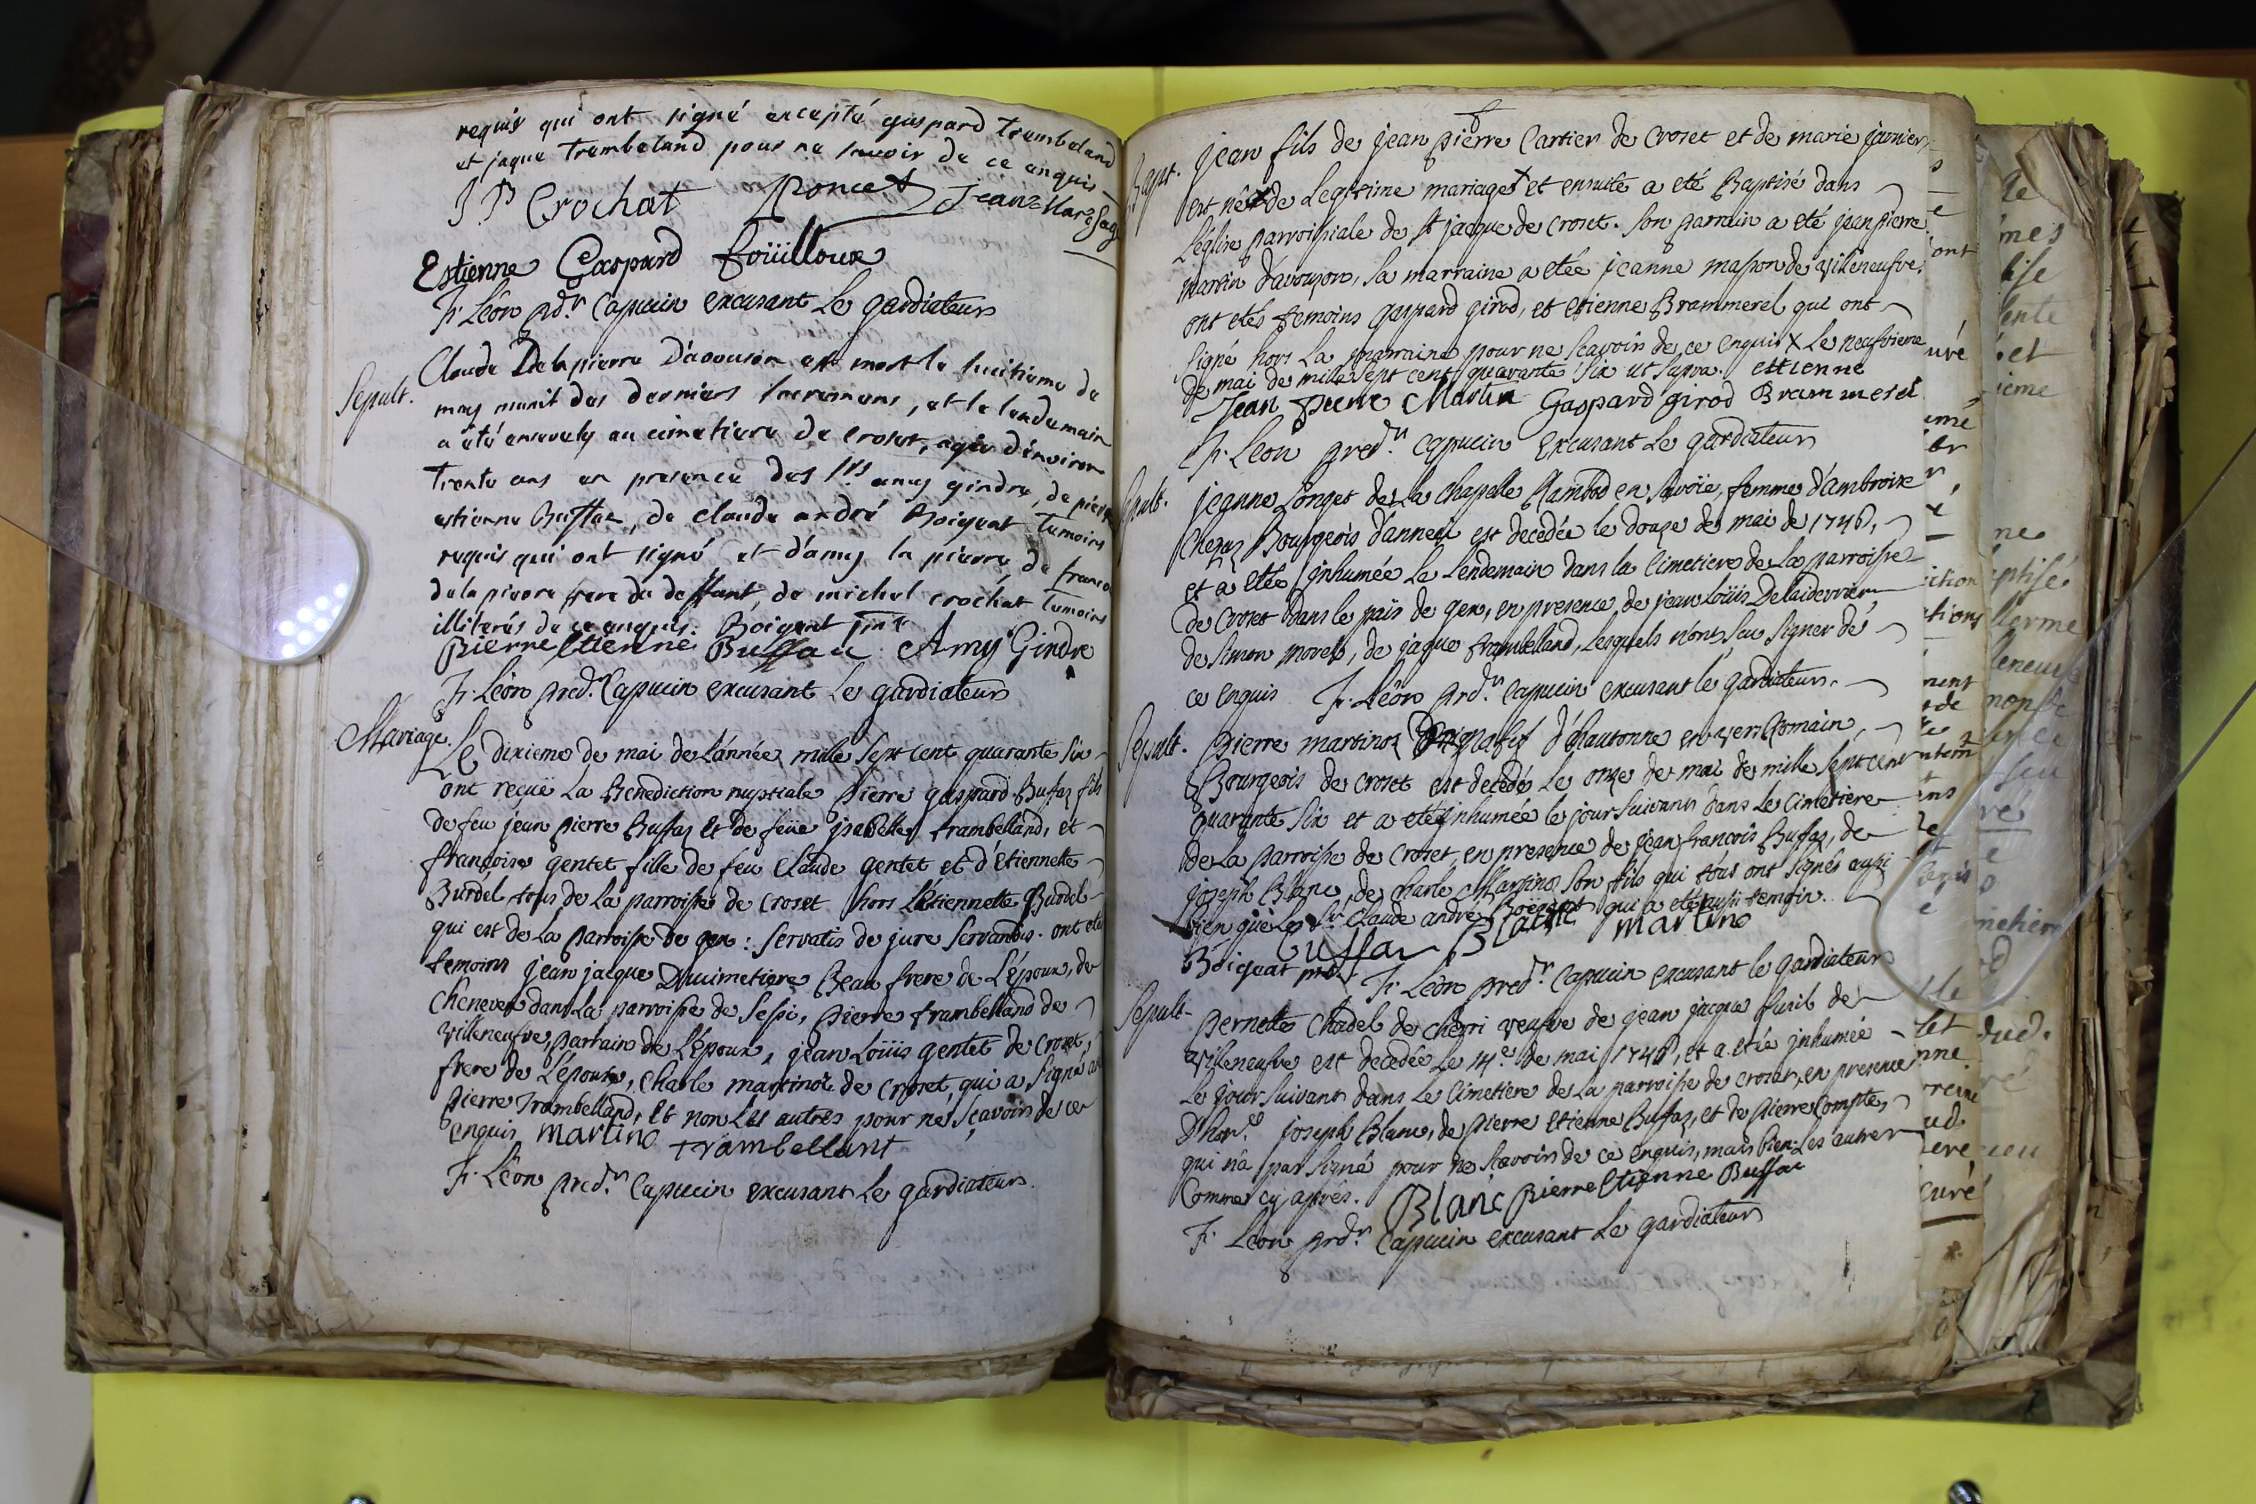 requis qui ont signé excepté gaspard Trambeland
et jaque Trambeland pour ne savoir de ce anquis
J P Crochat Poncet Jean
Estienne Gaspard foüilloux
F. Léon pd.r Capucin excusant le gardiateur
Sepult.
Claude Delapierre D'avouson est mort le huitieme de
may munit des derniers sacremens, et le lendemain
a été ensevely au cimetiere de croset, agée d'environ
Trente ans en presence des Srs. amy gindre, de pierre
estienne Buffaz, de claude andré Boigeat Temoins
requis qui ont signé et d'amy la pierre de franco
dela pierre frere du deffunt, de michel crochat Temoins
illiterés de ce anquis. Boigeat
Pierre Etienne Buffau Amy Gindre
F. Léon pred.r Capucin excusant Le gardiateur
Mariage.
Le dixieme de mai de L'année mille sept cent quarante six
ont reçüe La Benediction nuptiale pierre gaspard Buffaz fils
de feu jean pierre Buffaz Et de feüe jsabelle trambelland, et
françoise gentet fille de feu Claude gentet et d'Etiennette
Burdel tous de La parroisse de croset hors L'étiennette Burdel
qui est de La parroisse de gex: servatis de jure servandis. ont eté
temoins jean jacque Duimetiere Beau frere de L'époux, de
Chenever dans La parroisse de Sessi, pierre trambelland de
villeneufve, parrain de L'époux, jean Loüis gentet de croset,
frere de L'épouse, charle martinoz de croset, qui a signé a
pierre Trambelland, Et non Les autres pour ne sçavoir de ce
enquis martino trambellant
F. Léon pred.r Capucin excusant Le gardiateur.
Bapt.
jean fils de jean pierre Cartier de croset et de marie janier
est né de Legitime mariage et ensuite a eté Baptisé dans
L'église parroissiale de St jacque de croset. son parrain a eté jean pierre
martin d'avouzon, sa marraine a etée jeanne masson de villeneufve.
ont etés temoins gaspard girod, et etienne Brammerel qui ont
signé hors La marraine pour ne scavoir de ce enquis X Le neufvieme
de mai de mille sept cent quarante six ut supra. ettienne
Jean pierre Martin Gaspard girod Brammerel
F. Leon pred.r Capucin Excusant Le gardiateur
Sepult.
jeanne Longet de La chapelle Rambod en Savoïe, femme d'ambroise
Bourgeois d'anneci est decedée le douze de mai de 1746,
et a etée jnhumée Le Lendemain dans la Cimetiere de La parroisse
de croset dans le païs de gex, en presence de jean Loüis Delaiderriere
de simon morel, de jaque trambelland, Lesquels n'ont seu signer de
ce enquis F. Léon prd.r Capucin excusant lé gardiateur.
Sepult.
pierre martinoz d'échautonne en ver Romain,
Bourgeois de croset est decedé Le onze de mai de mille sept cent
quarante six et a eté jnhumée le jour suivant dans Le Cimetiere
de La parroisse de croset, en presence de jean francois Buffaz, de
joseph Blanc, de charle Martinoz son fils qui tous ont signés aussi
bien que Le Sr. Claude andré Boigeat qui a eté aussi temoin.
Buffau Blanc martino
Boigeat
F. Léon pred.r Capucin excusant le gardiateur
Sepult.
pernette Chadel de cherri veufve de jean jacque fusil de
villeneufve est decedée Le 14e. de mai 1746, et a etée jnhumée
Le jour suivant dans Le Cimetiere de La parroisse de croset, en presence
joseph Blanc, de pierre Etienne Buffaz, et de pierre Compte,
qui n'a pas signé pour ne scavoir de ce enquis, mais bien Les autres
Comme cy aprés. Blanc pierre Etienne Buffau
F. Léon prd.r Capucin excusant Le gardiateur